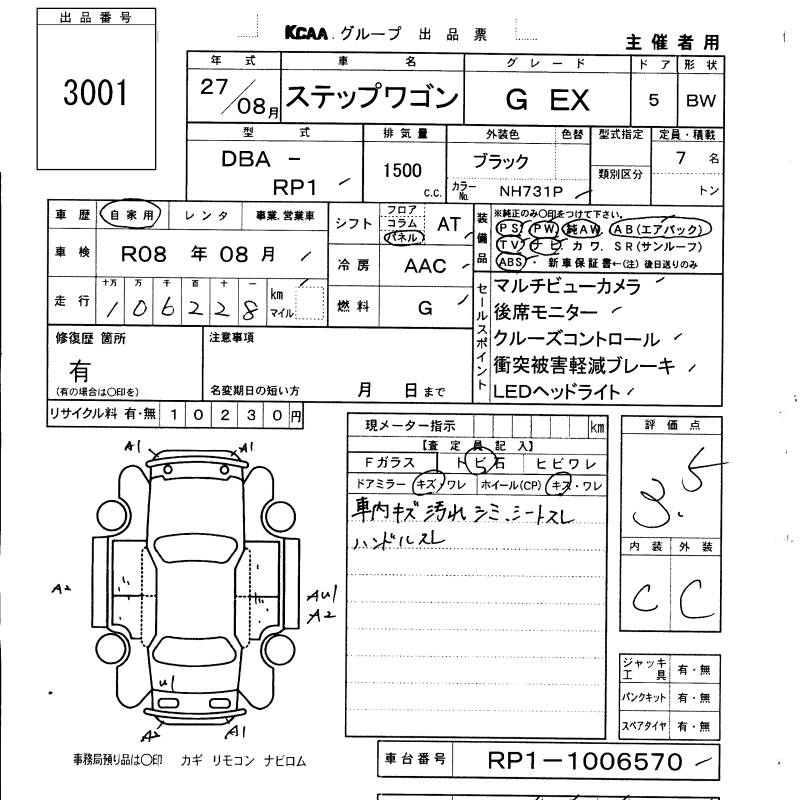 出品番号
3001
KCAA.グループ 出品票
主催者用
年式 車名 グレード ドア 形状
27/08月 ステップワゴン G EX 5 BW
型式 排気量 外装色 色替 型式指定 定員・積載
DBA - RP1 1500 c.c. ブラック 類別区分 7名
カラーNo. NH731P トン
車歴 自家用 レンタ 事業.営業車
車検 R08年08月
走行 十万 万 千 百 十 一
106228 km マイル
シフト フロア コラム パネル AT
冷房 AAC
燃料 G
装備品 ※純正のみ〇印をつけて下さい。
PS PW 純AW AB(エアバック)
TV ナビ カワ. SR(サンルーフ)
ABS ・新車保証書←(注)後日送りのみ
セールスポイント
マルチビューカメラ
後席モニター
クルーズコントロール
衝突被害軽減ブレーキ
LEDヘッドライト
修復歴 箇所
有
(有の場合は〇印を)
注意事項
名変期日の短い方 月 日まで
リサイクル料 有・無 10230円
現メーター指示 km
【査定員記入】
Fガラス トビ石 ヒビワレ
ドアミラー キズ・ワレ ホイール(CP) キズ・ワレ
車内キズ 汚れ シミ、シートスレ
ハンドルスレ
評価点
3.5
内装 外装
C C
ジャッキ工具 有・無
パンクキット 有・無
スペアタイヤ 有・無
A1 A1
A2
AU1
A2
U1
A2 A1
事務局預り品は〇印 カギ リモコン ナビロム
車台番号 RP1-1006570